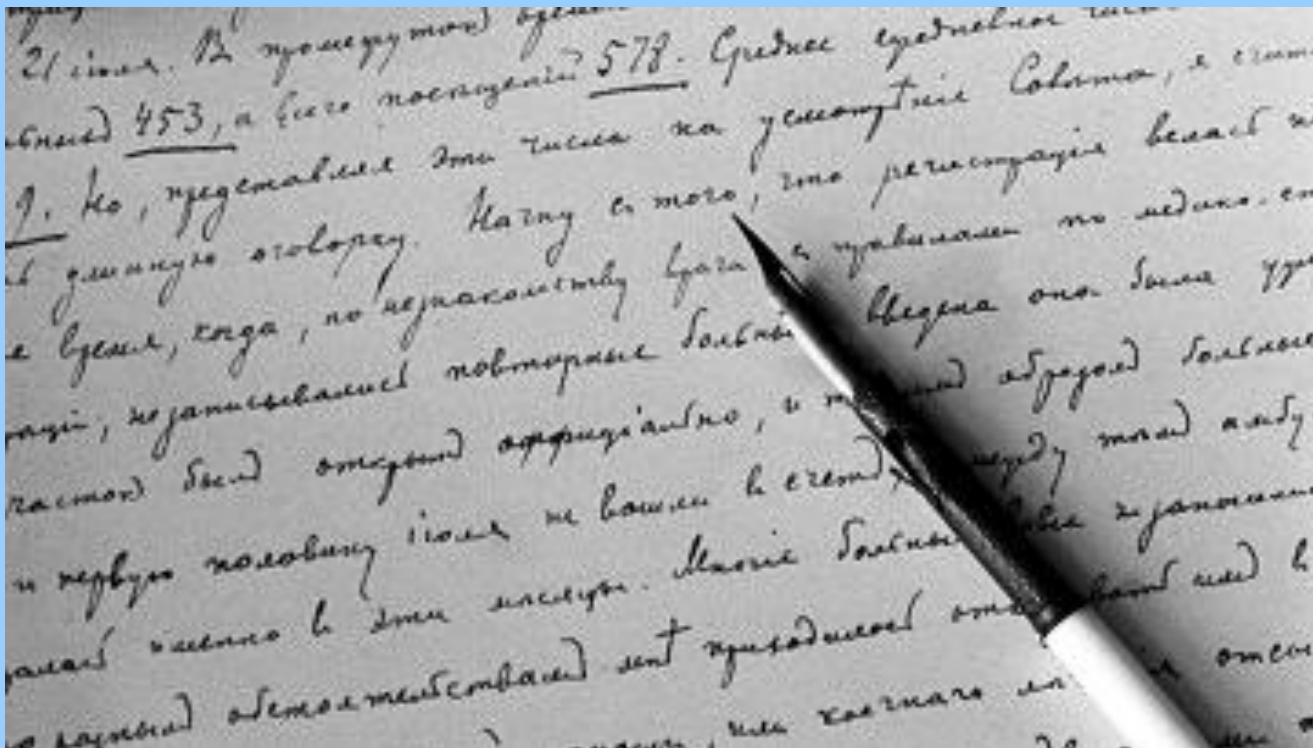 21 іюля. В промежуток времени
453, а всего посещеній 578. Среднее ежедневное число
9. Но, представляя эти числа на усмотрѣніе Совѣта, я счита
длинную оговорку. Начну съ того, что регистрація велась
время, когда, по незнакомству врача съ правилами по медико-ст
не записывались повторные больные введена она была
участокъ былъ открытъ оффиціально, и образомъ больные
и первую половину іюля не вошли въ счетъ, между тѣмъ амбу
именно въ эти мѣсяцы. Многіе больные
разнымъ обстоятельствамъ мнѣ приходилось имъ въ
или коечнаго